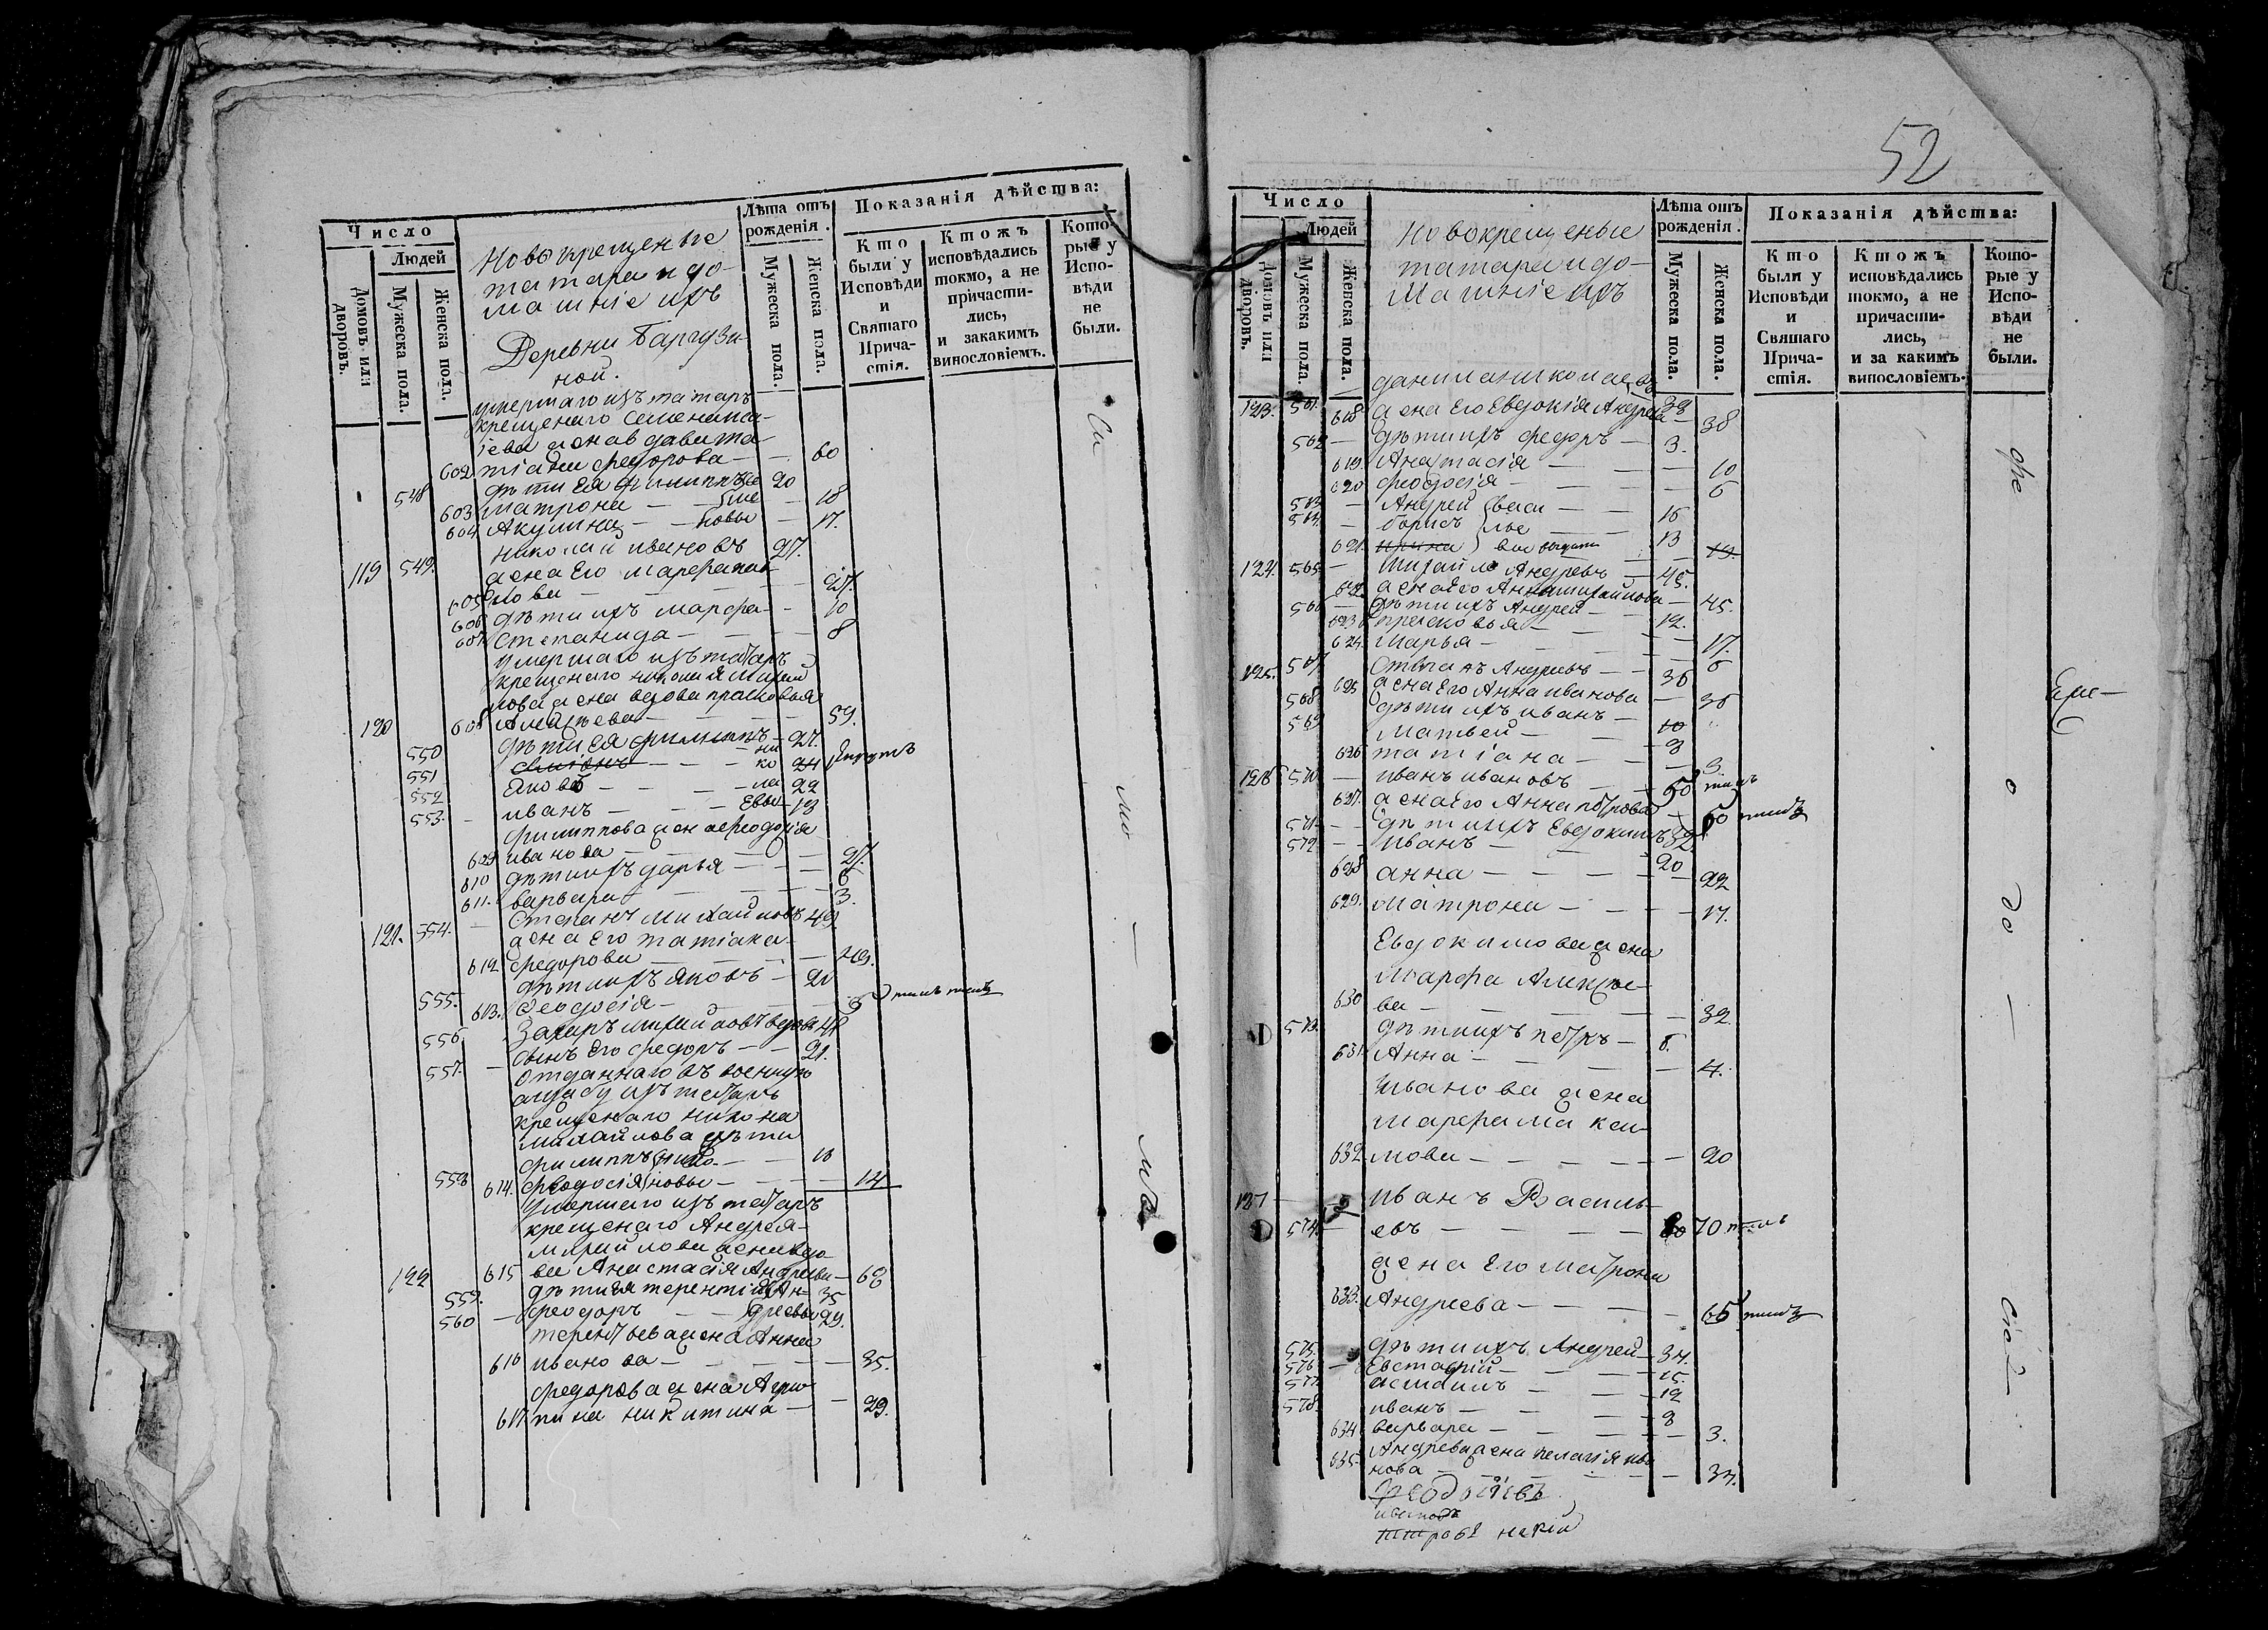 Число
Людей
Домовъ или дворовъ.
Мужеска пола.
Женска пола.
Новокрещеные
татара и до-
машніе ихъ
Деревни Баргузи-
ной.
Лѣта отъ рожденія.
Мужеска пола.
Женска пола.
Показанія дѣйства:
Кто были у Исповѣди и Святаго Прича-стія.
Ктожъ исповѣдались токмо, а не причасти-лись, и закакимъ винословіемъ.
Кото-рые у Испо-вѣди не были.
умершаго изъ татаръ
крещенаго Семена
жена вдова
602 тіана федорова — 60
548 дѣти ея филиппъ 20
603 Матрона — 18
604 Акулина — 17.
119 549. николай ивановъ 27.
жена его марфа
605 лова — 27.
606 дѣти ихъ марфа — 10
607 степанида — 8
умершаго изъ татаръ
крещенаго
лова жена вдова прасковья
120 608 Алексѣева — 59.
550 дѣти ея филиппъ — 27.
551 24
552 Яковъ — 22
553. иванъ — 13
филиппова жена феодосія
609 иванова — 27.
610 дѣти ихъ дарья — 6
611. варвара — 3.
121. 554. Степанъ михайловъ 49.
жена его татіана
612 федорова — 49.
555. дѣти ихъ яковъ — 20
613. Феодосія —
556 Захаръ михайловъ вдовъ 48
557. сынъ его федоръ — 21.
отданнаго въ военную
службу изъ татаръ
крещенаго никона
михайлова дѣти
558 филиппъ 10
614. феодосія — 14
умершаго изъ татаръ
крещенаго Андрея
михайлова жена вдо-
122 615 ва Анастасія Андреева — 68
559. дѣти ея терентій Ан- 35
560 — феодоръ — дреевы 29.
терентьева жена Анна
616 иванова — 35.
федорова жена Агри-
617 пина никитина — 29.
Си
мо
мв
52
Число
Людей
Домовъ или дворовъ.
Мужеска пола.
Женска пола.
Новокрещеные
татара и до-
машніе ихъ
Лѣта отъ рожденія.
Мужеска пола.
Женска пола.
Показанія дѣйства:
Кто были у Исповѣди и Святаго Прича-стія.
Ктожъ исповѣдались токмо, а не причасти-лись, и за какимъ винословіемъ.
Кото-рые у Испо-вѣди не были.
123. 561. данила николаевъ 38
618 жена его Евдокія Андреева — 38
562 — дѣти ихъ федоръ — 3.
619. Анастасія — 10
620 феодосія — 6
563 — Андрей 16
564. — борисъ 13
621.
124. 565 — михайло Андреевъ — 45.
622. жена его Анна михайлова — 45.
566 — дѣти ихъ Андрей — 12.
623 прасковья — 17.
624. марья — 6
125. 567 Степанъ Андреевъ — 36
625 жена его Анна иванова — 36
568 дѣти ихъ иванъ — 10
569 Матвей — 8
626 татіана — 3
126 570 — иванъ ивановъ — 60
627. жена его Анна петрова — 60
571 — дѣти ихъ Евдокимъ 32
572 — иванъ — 20
628 анна — 22
629. Матрона — 17.
Евдокимова жена
Марфа Алексѣе-
630 ва — 32.
573. дѣти ихъ петръ — 6.
631 Анна — 4.
Иванова жена
марфа мак
632 мова — 20
127 иванъ Василь-
574. евъ — 70
жена его матрона
633. Андреева — 65
575. дѣти ихъ Андрей — 34.
576 — Евстафій — 15.
577 — 12
578. иванъ — 8
634 варвара — 3.
Андреева жена пелагія ива-
635. нова — 34.
фе
о
до
сіей